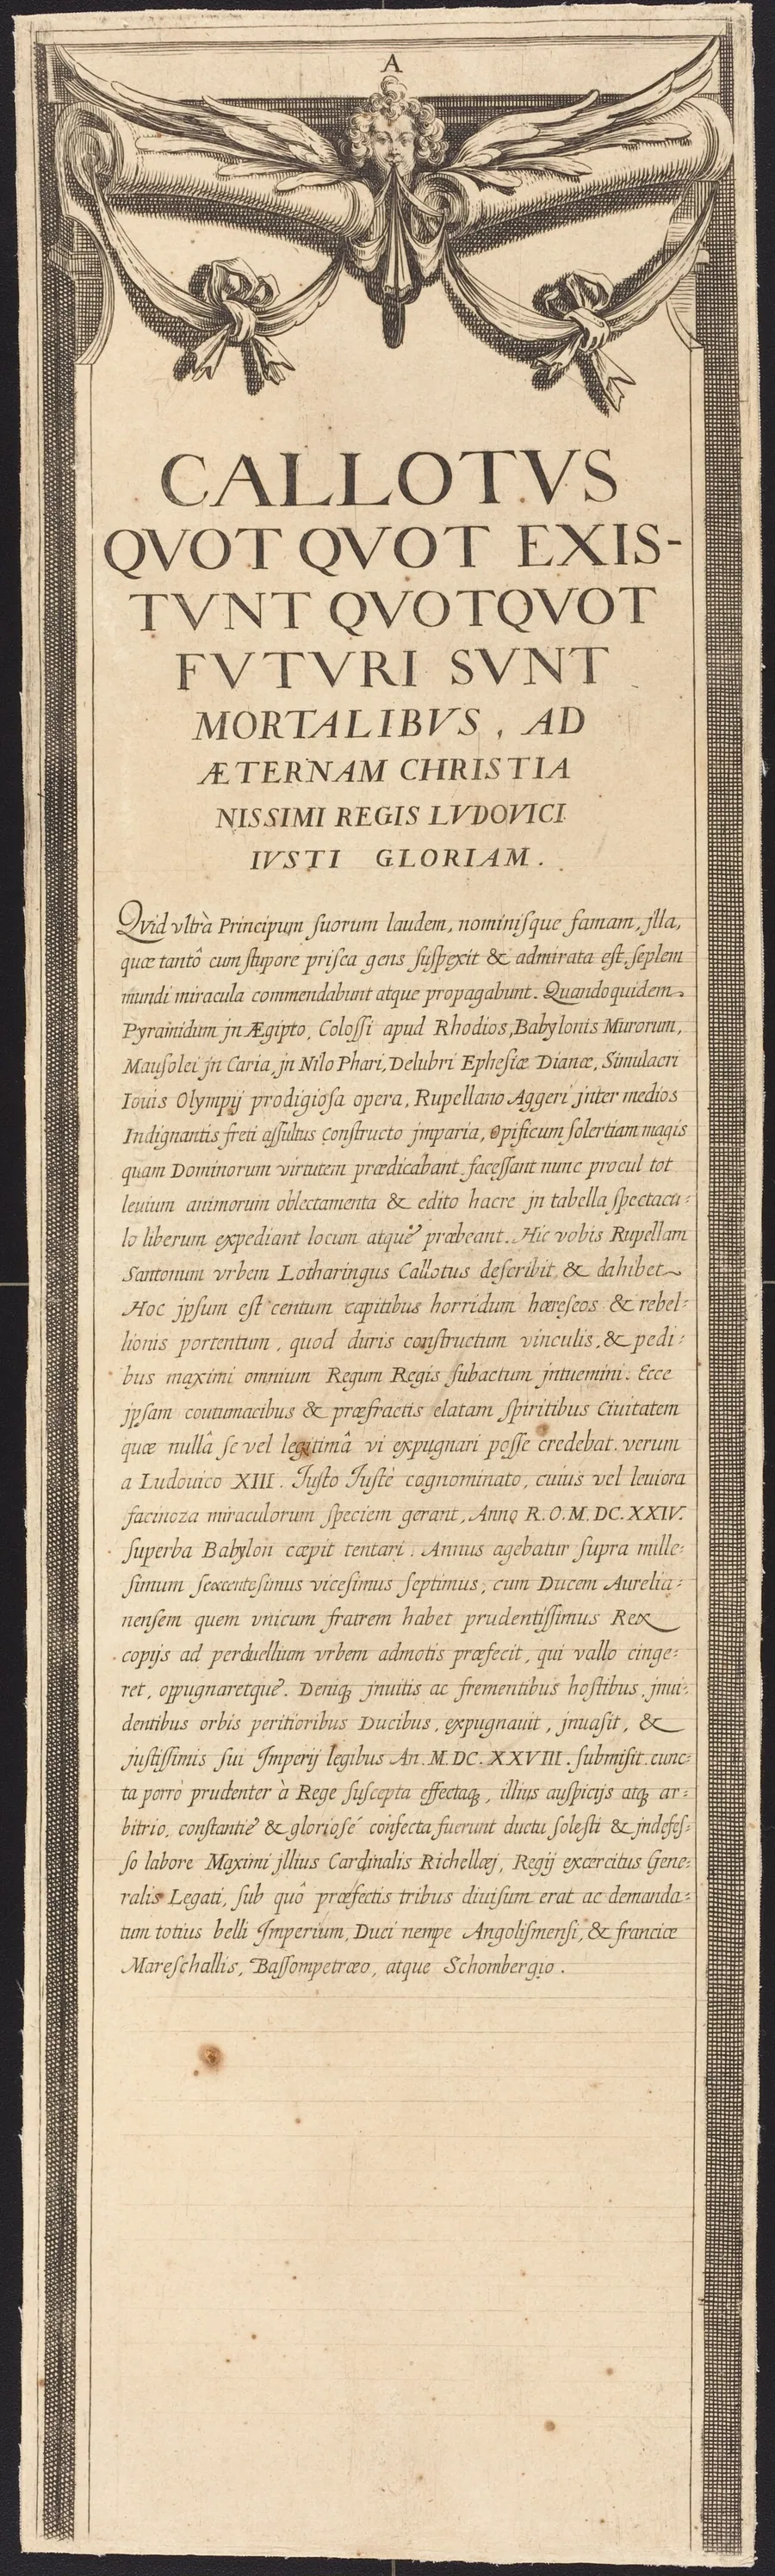 A
CALLOTVS
QVOT QVOT EXIS-
TVNT QVOTQVOT
FVTVRI SVNT
MORTALIBVS, AD
ÆTERNAM CHRISTIA
NISSIMI REGIS LVDOVICI
IVSTI GLORIAM.
Qvid vltrà Principum ſuorum laudem, nominiſque famam, jlla,
quæ tantô cum ſtupore priſca gens ſuſpexit & admirata eſt, ſeptem
mundi miracula commendabunt atque propagabunt. Quandoquidem
Pyramidum jn Ægipto, Coloſſi apud Rhodios, Babylonis Murorum,
Mauſolei jn Caria, jn Nilo Phari, Delubri Epheſiæ Dianæ, Simulacri
Iouis Olympij prodigioſa opera, Rupellano Aggeri jnter medios
Indignantis freti aſſultus Conſtructo jmparia, Opificum ſolertiam magis
quam Dominorum virtutem prædicabant faceſſant nunc procul tot
leuium animorum oblectamenta & edito hacre jn tabella ſpectacu:
lo liberum expediant locum atque præbeant. Hic vobis Rupellam
Santonum vrbem Lotharingus Callotus deſcribit & dahibet
Hoc jpſum eſt centum capitibus horridum hæreſeos & rebel:
lionis portentum, quod duris conſtructum vinculis, & pedi:
bus maximi omnium Regum Regis ſubactum jntuemini. Ecce
jpſam coutumacibus & præfractis elatam ſpiritibus Ciuitatem
quæ nullâ ſe vel legitimâ vi expugnari poſſe credebat. verum
a Ludouico XIII. Juſto Juſtè cognominato, cuius vel leuiora
facinoza miraculorum ſpeciem gerant, Anno R.O.M.DC.XXIV.
ſuperba Babylon cœpit tentari. Annus agebatur ſupra mille:
ſimum ſexcenteſimus viceſimus ſeptimus, cum Ducem Aurelia:
nenſem quem vnicum fratrem habet prudentiſſimus Rex
copijs ad perduellium vrbem admotis præfecit, qui vallo cinge:
ret, oppugnaretque. Deniq; jnuitis ac frementibus hoſtibus, jnui:
dentibus orbis peritioribus Ducibus, expugnauit, jnuaſit, &
juſtiſſimis ſui Jmperij legibus An. M.DC.XXVIII. ſubmiſit. cunc:
ta porrò prudenter à Rege ſuſcepta effectaq;, illius auſpicijs atq; ar:
bitrio, conſtantiè & glorioſé confecta fuerunt ductu ſoleſti & jndefeſ:
ſo labore Maximi jllius Cardinalis Richellæj, Regij excercitus Gene:
ralis Legati, ſub quô præfectis tribus diuiſum erat ac demanda:
tum totius belli Jmperium, Duci nempe Angoliſmenſi, & franciæ
Mareſchallis, Baſſompetræo, atque Schombergio.